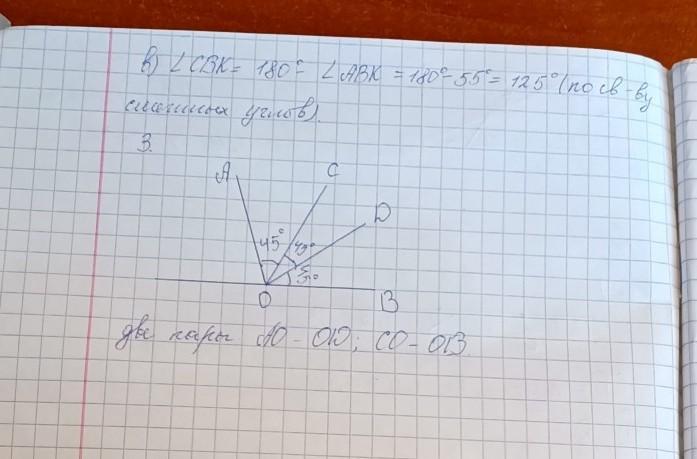 в) ∠CBK = 180° - ∠ABK = 180° - 55° = 125° (по св-ву
смежных углов).
3.
A
C
D
45°
45°
O
B
две пары AO - OD; CO - OB